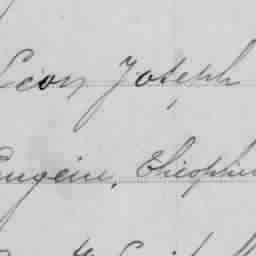 Léon Joseph
Eugène, Théophile